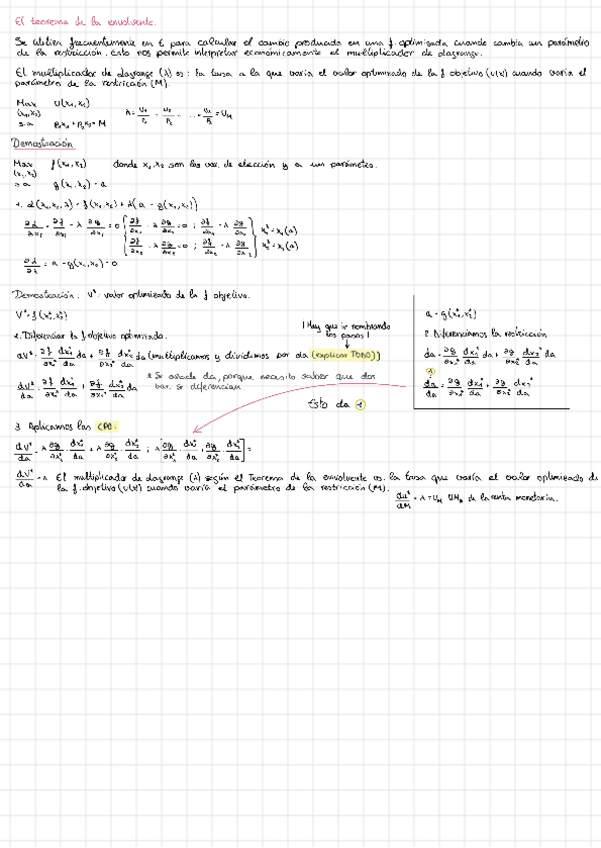 El teorema de la envolvente.
Se utiliza frecuentemente en E para calcular el cambio producido en una f. optimizada cuando cambia un parámetro
de la restricción. Esto nos permite interpretar económicamente el multiplicador de Lagrange.
El multiplicador de Lagrange (λ) es: la tasa a la que varía el valor optimizado de la f objetivo (U(x)) cuando varía el
parámetro de la restricción (M).
Max U(x₁, x₂)
(x₁,x₂)
s.a P₁x₁ + P₂x₂ = M
Demostración
Max f(x₁, x₂) donde x₁, x₂ son las var. de elección y a un parámetro.
(x₁,x₂)
s.a g(x₁, x₂) = a
1. L(x₁, x₂, λ) = f(x₁, x₂) + λ(a - g(x₁, x₂))
Demostración: V*: valor optimizado de la f objetivo.
V* = f(x₁*, x₂*)
1. Diferenciar la f objetivo optimizada.
dV* = ∂f/∂x₁* · dx₁*/da da + ∂f/∂x₂* · dx₂*/da da (multiplicamos y dividimos por da (explicar TODO))
* Se añade da, porque necesito saber que dos
var. se diferencian
¡Hay que ir nombrando
los pasos!
a = g(x₁*, x₂*)
2. Diferenciamos la restricción
da = ∂g/∂x₁* · dx₁*/da da + ∂g/∂x₂* · dx₂*/da da
Esto da 1
3. Aplicamos las CPO:
dV*/da = λ El multiplicador de Lagrange (λ) según el Teorema de la envolvente es: la tasa que varía el valor optimizado de
la f. objetivo (U(x)) cuando varía el parámetro de la restricción (M).
dU*/dM = λ = U_M UMg de la renta monetaria.